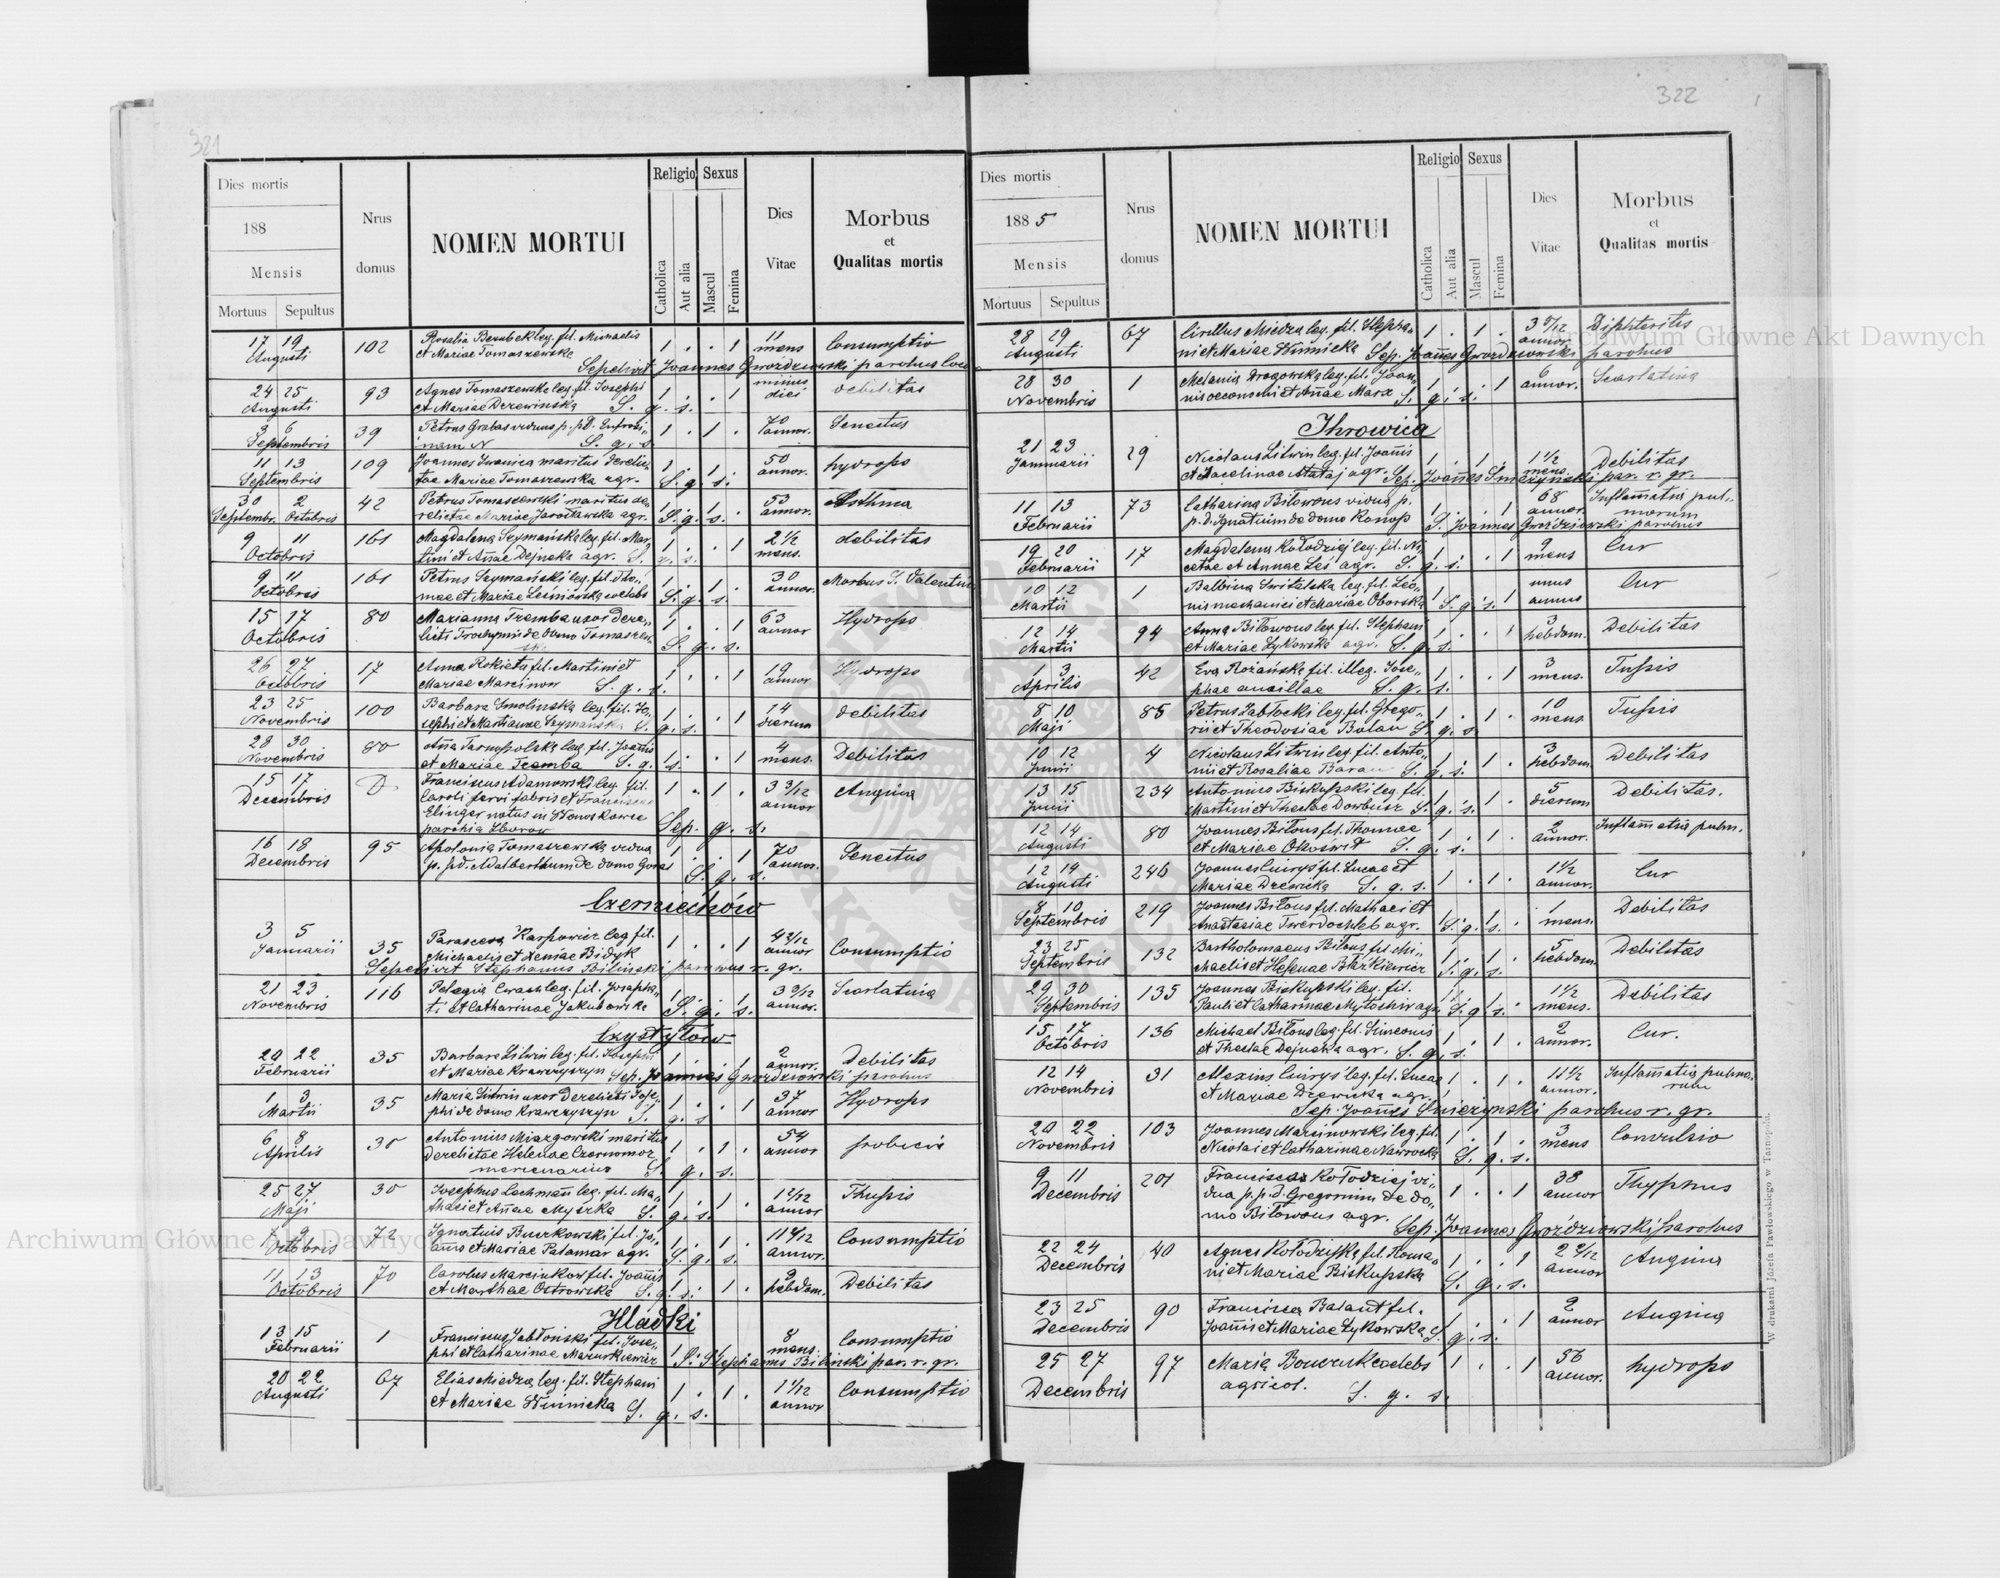 321
Dies mortis
188
Mensis
Mortuus Sepultus
Nrus
domus
NOMEN MORTUI
Religio
Catholica
Aut alia
Sexus
Mascul
Femina
Dies
Vitae
Morbus
et
Qualitas mortis
17 19
Augusti
102
Rosalia leg. fil. Michaelis
et Mariae Tomaszewska
1 . . 1
11
mens
Consumptio
Sepelivit Joannes Gwoździowski parohus
24 25
Augusti
93
Agnes Tomaszewska leg. fil. Josephi
et Mariae Derewinska S. g. s.
1 . . 1
unius
diei
debilitas
3 6
Septembris
39
Petrus Grabas viduus p. p. d.
S. g. s.
1 . 1 .
70
annor.
Senectus
11 13
Septembris
109
Joannes Iwanica maritus derelic-
tae Mariae Tomaszewska agr. S. g. s.
1 . 1 .
50
annor.
hydrops
30 2
Septembr. Octobris
42
Petrus Tomaszewski maritus de-
relictae Mariae Jarosławska agr. S. g. s.
53
annor.
Asthma
9 11
Octobris
161
Magdalena Szymańska leg. fil. Mar-
tini et Añae Dejneka agr. S. g. s.
1 . . 1
2 1/2
mens.
debilitas
9 11
Octobris
161
Petrus Szymański leg. fil. Tho-
mae et Mariae Leśniowska coelebs S. g. s.
30
annor.
Morbus S. Valentini
15 17
Octobris
80
Marianna Tremba uxor dere-
licti Trochymi de domo
S. g. s.
1 . . 1
63
annor
Hydrops
26 27
Octobris
17
Anna Rokieta fil. Martini et
Mariae Marcinow S. g. s.
1 . . 1
19
annor
Hydrops
23 25
Novembris
100
Barbara Smolinska leg. fil. Jo-
sephi et Marianae Szymańska S. g. s.
1 . . 1
14
dierum
debilitas
28 30
Novembris
80
Aña Tarnopolska leg. fil. Joañis
et Mariae Tremba S. g. s.
1 . . 1
4
mens.
Debilitas
15 17
Decembris
D
Franciscus Adamowski leg. fil.
Caroli fervi fabris et Franciscae
Elinger natus in
parohia Zborow
Sep. g. s.
1 . 1 .
3 3/12
annor
Angina
16 18
Decembris
95
Apolonia Tomaszewska vidua
p. p. d. Adalbertum de domo Goral
S. g. s.
1 . . 1
70
annor.
Senectus
Czerniechów
3 5
Januarii
35
Parasceva Karpowicz leg fil.
Michaelis et Xeniae Bidyk
1 . . 1
4 2/12
annor
Consumptio
Sepelivit Stephanus Bilinski parohus r. gr.
21 23
Novembris
116
Pelagia leg. fil. Josapha-
ti et Catharinae Jakubowska S. g. s.
3 3/12
annor.
Scarlatina
Czystyłów
20 22
Februarii
35
Barbara Litwin leg. fil. Josephi
et Mariae Krawczyszyn
1 . . 1
2
annor.
Debilitas
Sep. Joannes Gwoździowski parohus
1 3
Martii
35
Maria Litwin uxor derelicti Jose-
phi de domo Krawczyszyn S. g. s.
1 . . 1
37
annor
Hydrops
6 8
Aprilis
30
Antonius Miazgowski maritus
derelictae Helenae Czornomaz
mercenarius S. g. s.
1 . 1 .
54
annor
25 27
Maji
30
Josephus Lachmañ leg. fil. Ma-
thaei et Añae Myszka S. g. s.
1 . 1 .
1 2/12
annor
Thussis
7 9
Octobris
72
Ignatius Burkowski fil. Jo-
añis et Mariae Palamar agr. S. g. s.
1 . 1 .
annor.
Consumptio
11 13
Octobris
70
Carolus Marcinkow fil. Joañis
et Marthae Ostrowska S. g. s.
1 . 1 .
9
hebdom.
Debilitas
Hladki
13 15
Februarii
1
Franciscus Jabłoński fil. Jose-
phi et Catharinae Mazurkiewicz
8
mens.
Consumptio
S. Stephanus Bilinski par. r. gr.
20 22
Augusti
67
Elias Miedza leg. fil. Stephani
et Mariae Winnicka S. g. s.
1 . 1 .
1 1/12
annor
Consumptio
322
Dies mortis
1885
Mensis
Mortuus Sepultus
Nrus
domus
NOMEN MORTUI
Religio
Catholica
Aut alia
Sexus
Mascul
Femina
Dies
Vitae
Morbus
et
Qualitas mortis
28 29
Augusti
67
Cirillus Miedza leg. fil. Stepha-
ni et Mariae Winnicka
1 . 1 .
annor
Diphteritis
Sep. Joañes Gwozdziowski parohus
28 30
Novembris
1
Melania Drogowska leg. fil. Joan-
nis oeconomi et Añae Marx S. g. s.
1 . . 1
6
annor.
Scarlatina
Ihrowica
21 23
Januarii
29
Nicolaus Litwin leg. fil. Joañis
et Aacelinae Mataj agr.
1 . 1 .
1 1/2
mens.
Debilitas
Sep. Joañes Śnieżyński par. r. gr.
11 13
Februarii
73
Catharina Biłowous vidua p.
p. d. Ignatium de domo Konop
1 . . 1
68
annor.
Inflamatia pul-
morum
S. Joannes Gwoździowski parohus
19 20
Februarii
17
Magdalena Kołodziej leg. fil. Ni-
cetae et Annae Leś agr. S. g. s.
1 . . 1
9
mens
Cur
10 12
Martii
1
Balbina Switalska leg. fil. Leo-
nis mechanici et Mariae Oborska S. g. s.
unus
annus
Cur
12 14
Martii
94
Anna Biłowous leg. fil. Stephani
et Mariae Łykowska agr. S. g. s.
1 . . 1
3
hebdom.
Debilitas
1 3
Aprilis
42
Eva Rożańska fil. illeg. Jose-
phae ancillae S. g. s.
1 . . 1
3
mens.
Tussis
8 10
Maji
85
Petrus Jabłocki leg. fil. Grego-
rii et Theodosiae Bulan S. g. s.
1 . 1 .
10
mens
Tussis
10 12
Junii
4
Nicolaus Litwin leg. fil. Anto-
nii et Rosaliae Baran S. g. s.
1 . 1 .
3
hebdom
Debilitas
13 15
Junii
234
Antonius Biskupski leg. fil.
Martini et Theclae Dowbusz S. g. s.
1 . 1 .
5
dierum
Debilitas.
12 14
Augusti
80
Joannes Biłous fil. Thomae
et Mariae Okoświt S. g. s.
1 . 1 .
2
annor.
Inflam̄atia pulm.
12 14
Augusti
246
Joannes fil. Lucae et
Mariae Drewicka S. g. s.
1 . 1 .
1 1/2
annor.
Cur
8 10
Septembris
219
Joannes Biłous fil. Mathaei et
Anastasiae Twerdochleb agr. S. g. s.
1
mens.
Debilitas
23 25
Septembris
132
Bartholomaeus Biłous fil. Mi-
chaelis et Helenae Błażkiewicz S. g. s.
5
hebdom.
Debilitas
29 30
Septembris
135
Joannes Biskupski leg. fil.
Pauli et Catharinae agr. S. g. s.
1 1/2
mens.
Debilitas
15 17
Octobris
136
Michael Biłous leg. fil. Simeonis
et Theclae Dejneka agr. S. g. s.
1 . 1 .
2
annor.
Cur.
12 14
Novembris
31
Alexius leg. fil. Lucae
et Mariae Drewicka agr.
1 . 1 .
11 1/2
annor.
Inflam̄atia pulmo-
rum
Sep. Joañes Śnieżynski parohus r. gr.
20 22
Novembris
103
Joannes Marcinowski leg. fil.
Nicolai et Catharinae Nawrocka S. g. s.
1 . 1 .
3
mens
Convulsio
9 11
Decembris
201
Francisca Kołodziej vi-
dua p. p. d. Gregorium de do-
mo Biłowous agr.
1 . . 1
38
annor
Thyphus
Sep. Joannes Gwoździowski parohus
22 24
Decembris
40
Agnes Kołodziejska fil. Roma-
ni et Mariae Biskupska S. g. s.
1 . . 1
2 2/12
annor
Angina
23 25
Decembris
90
Francisca Balant fil.
Joañis et Mariae Łykowska S. g. s.
1 . . 1
2
annor
Angina
25 27
Decembris
97
Maria Bouczuk coelebs
agricol. S. g. s.
1 . . 1
36
annor.
hydrops
W drukarni Józefa Pawłowskiego w Tarnopolu.
Archiwum Główne Akt Dawnych
Archiwum Główne Akt Dawnych
ARCHIWUM GŁÓWNE AKT DAWNYCH